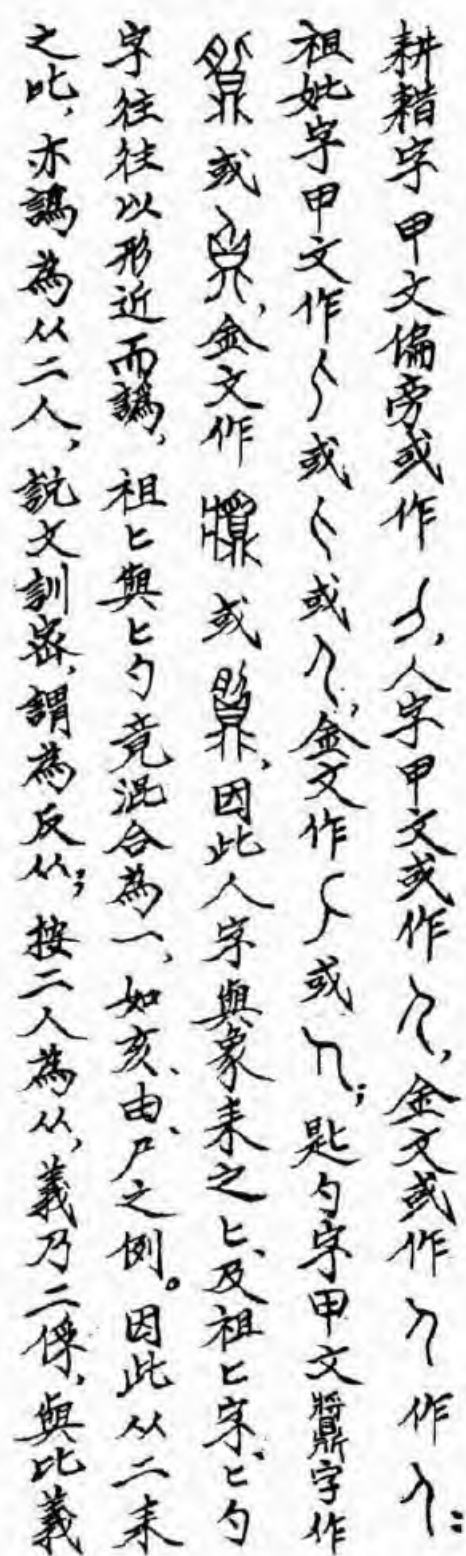 耕耤字甲文偏旁或作，人字甲文或作，金文或作作：
祖妣字甲文作或或，金文作或；匙勺字甲文鼎字作
或，金文作或，因此人字與象耒之匕、及祖匕字、匕勺
字往往以形近而譌，祖匕與匕勺竟混合為一，如亥、由、尸之例。因此从二耒
之比，亦譌為从二人，説文訓密，謂為反从；按二人為从，義乃二俘，與比義